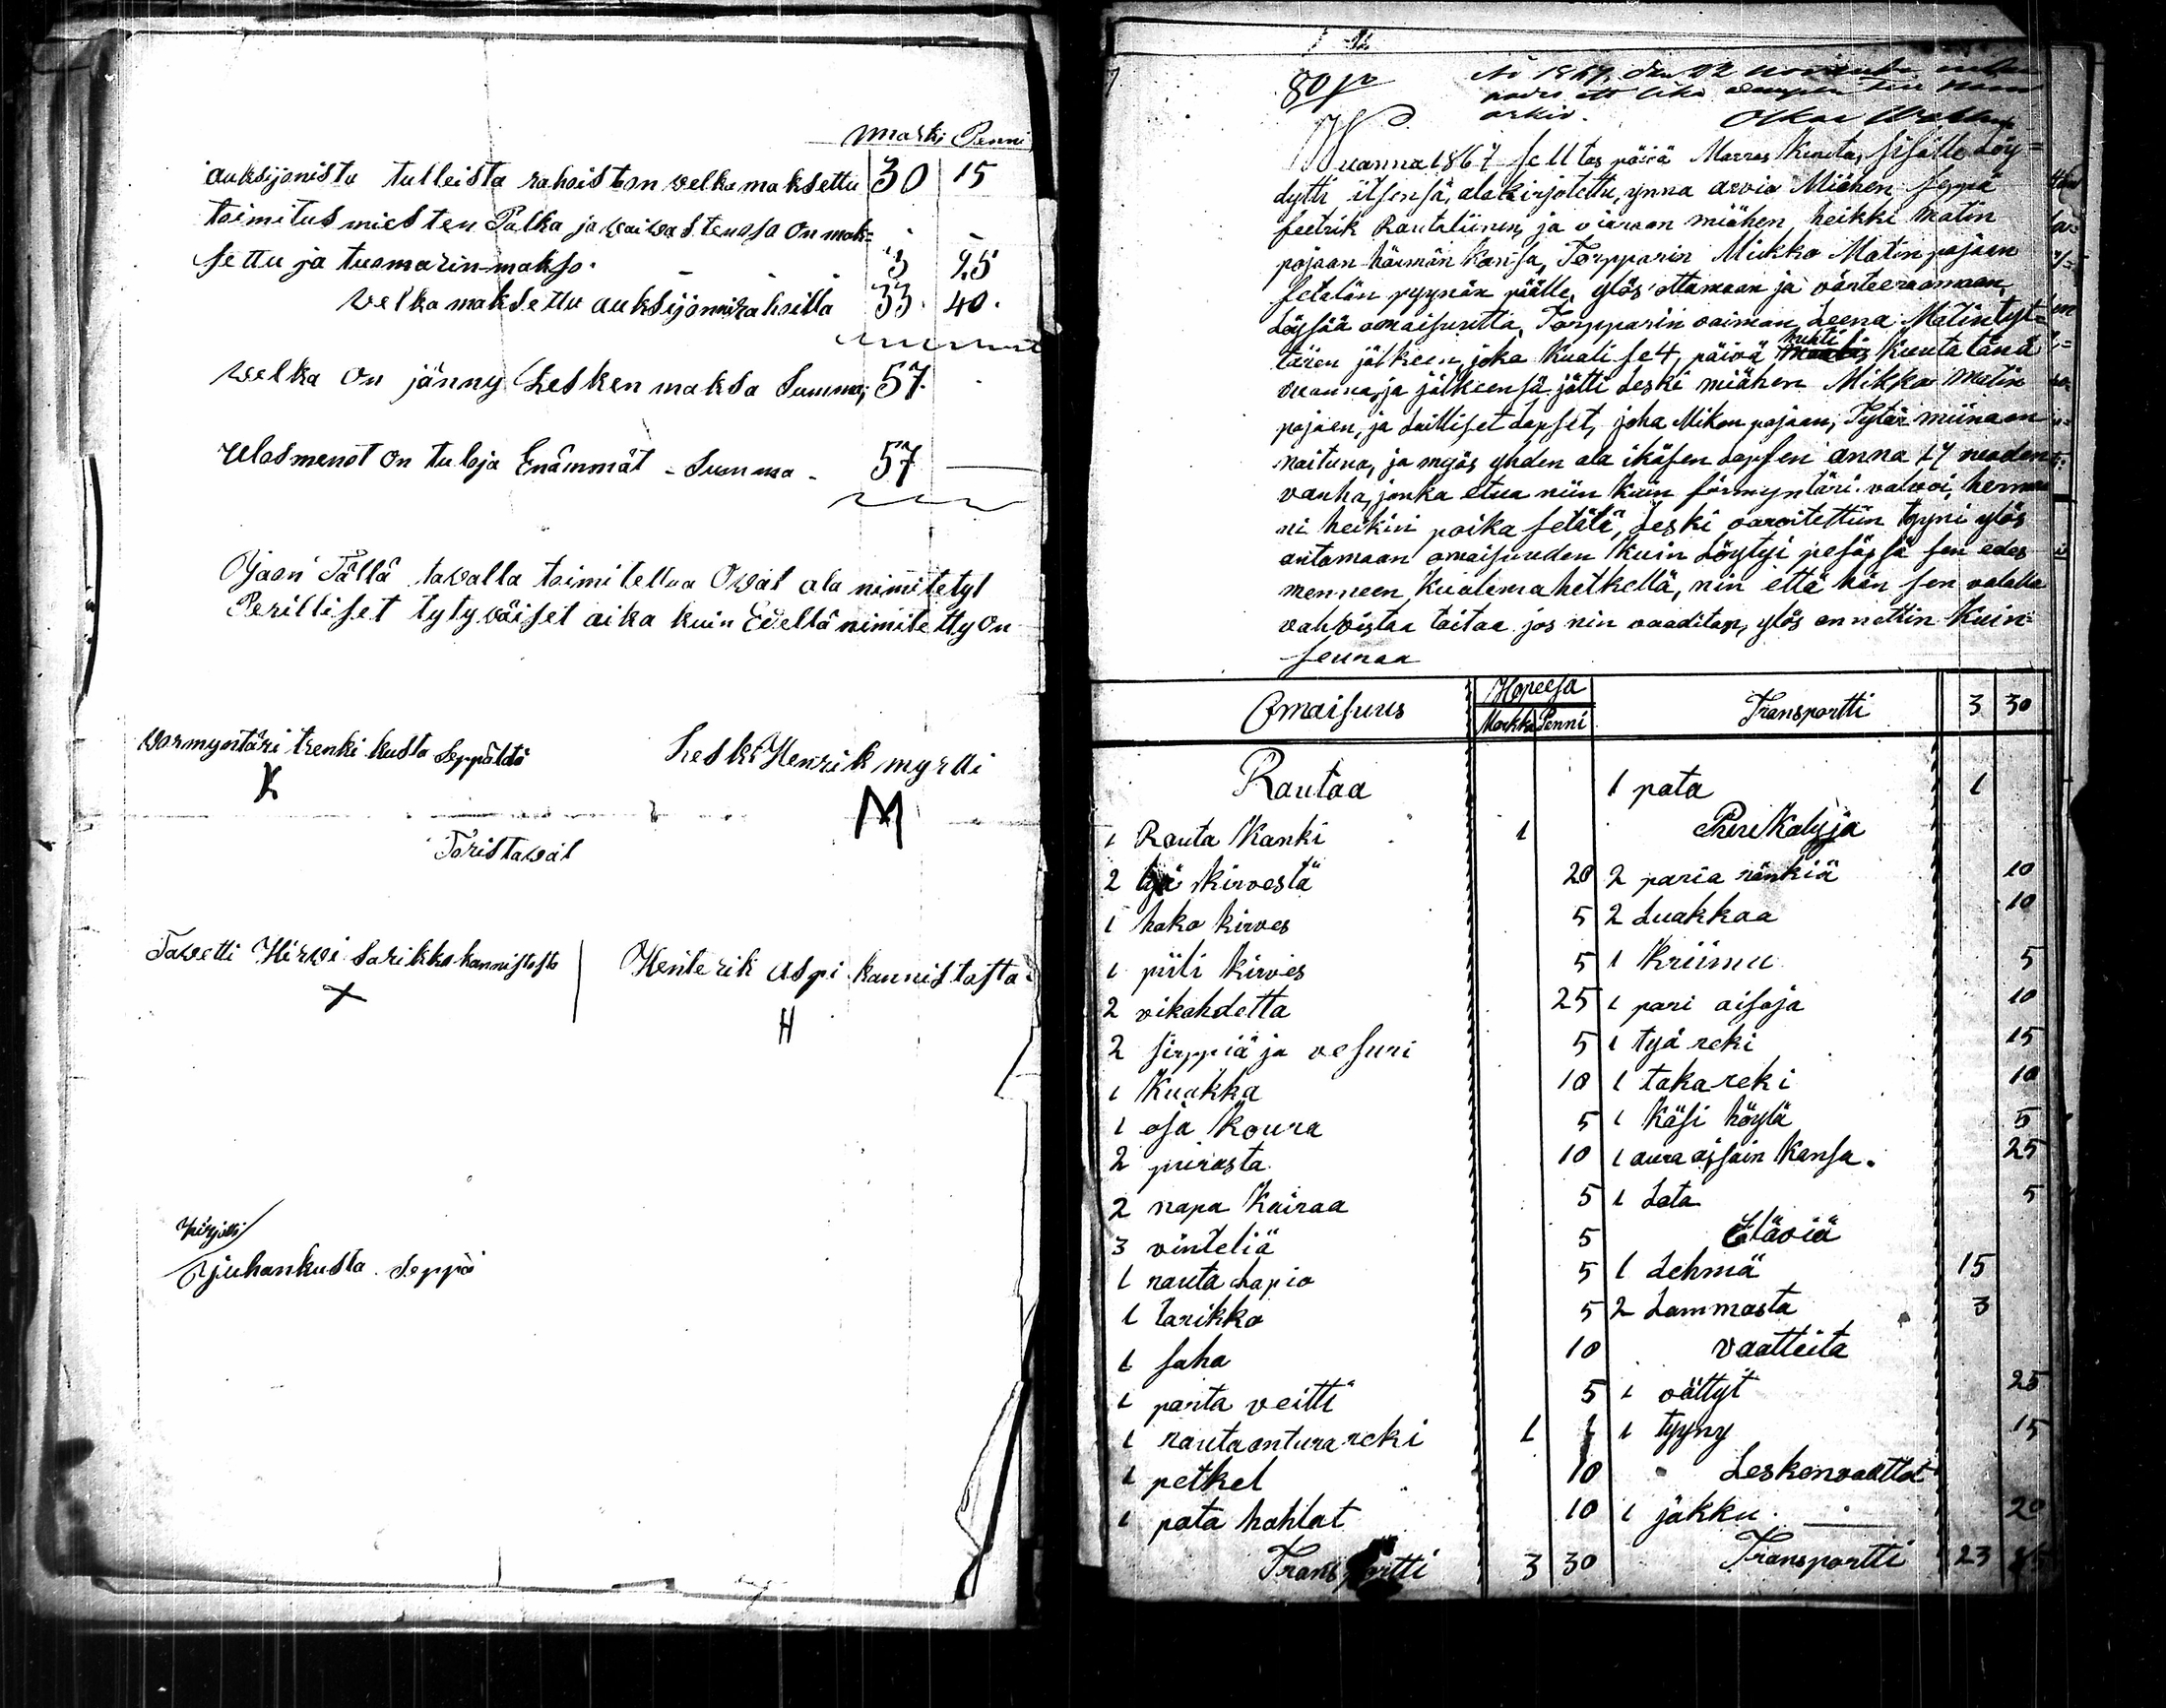 Marki Penni
auksijonista tulleista rahoista on welka maksettu 30 15
toimitus miesten Palka ja waiwastensa on mak=
settu ja tuomarin makso. 3 25
welka maksettu auksijonni rahoilla 33. 40.
welka on jänny Lesken maksa Summa, 57.
Ulosmenot on tuloja Enämmät - Summa - 57 —
Ojaon Tällä tawalla toimitettua Owat ala nimitetyt
Perilliset tytywäiset aika kuin Edellä nimitetty on
Wormyntäri trenki kusta Seppältä
Leski Henrik myrni
K
M
Toristawat
Tawetti Hirwi Sarikko kannistosta
Henterik Aspi kannistosta
X
H
Kirjotti
juhankusta Seppä
80 p
Ao 1867, den 22 november
arkiv. Oskar
Wuanna 1867 se 11tas päivä Marras Kuuta, sisälle Löy=
dytti itsensä, ala kirjotettu, ynna arvio Miähen seppä
feetrik Rautaliinin, ja vieraan miähen heikki matin
pojaan härmän kansa, Torpparin Mickko Matin pojaan
setälän pyynön päälle, ylös ottamaan ja värteeraamaan,
Löysää omaisuutta, Torpparin vaiman Leena Matintyt=
tären jälkeen, joka Kuali se 4, päivä huhti Kuuta tänä
vuanna, ja jälkeensä jätti Leski miähen Mikko Matin
pojaen, ja Lailliset Lapset, joha Mikon pojaan, Tytär miinaan
naituna, ja myös yhden ala ikäsen Lapsen anna 17 vuaden
vanha, jonka etua niin kuin förmyntäri valvoi, herman
ni heikin poika setälä, Leski varoitettiin tyyni ylös
antamaan omaisuuden kuin Löytyi pesässä sen edes
menneen Kualemahetkellä, nin että hän sen valalla
vahvistaa taitaa jos nin vaaditan, ylös annettin kuin
seuraa
Omaisuus Hopeesa Transportti 3 30
Markka Penni
Rautaa
1 pata 1
1 Rauta Kanki 1
Pueri Kalyja
2 työ kirvestä 20
2 paria ränkiä 10
1 hako kirves 5
2 Luakkaa 10
1 piili kirves 5
1 Kriimu 5
2 vikahdetta 25
1 pari aisoja 10
2 sirppiä ja vesuri 5
1 työ reki 15
1 Kuakka 10
1 taka reki 10
1 oja koura 5
1 Käsi höylä 5
2 puirasta 10
1 aura aisain Kansa. 25
2 napa Kairaa 5
1 Lata 5
3 vinteliä 5
Eläviä
1 rauta Lapio 5
1 Lehmä 15
1 Tarikko 5
2 Lammasta 3
1 saha 10
vaatteita
1 parta veitti 5
1 vättyt 25
1 rautaantura reki 1
1 tyyny 15
1 petkel 10
Leskenvaattet
1 pata hahlat 10
1 jakku. 20
Transportti 3 30
Transportti 23